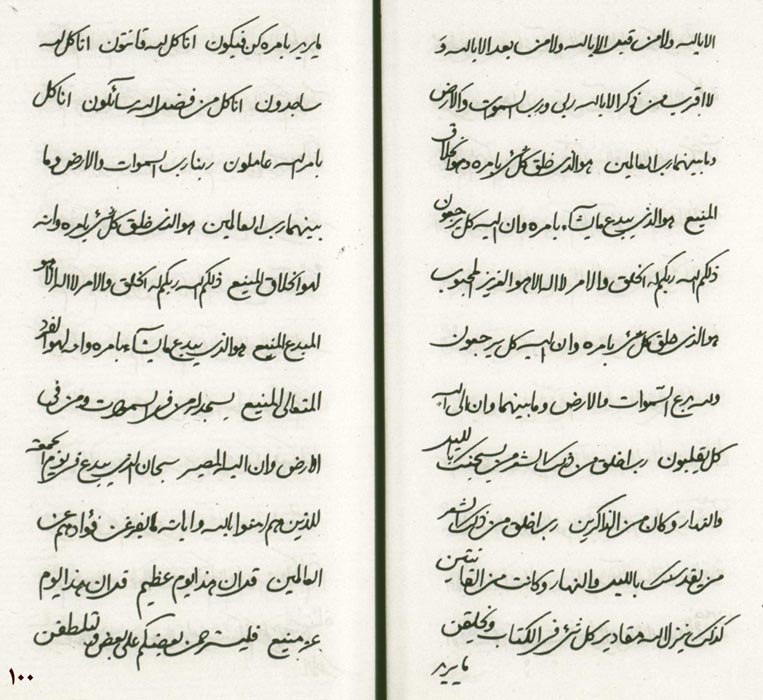 الا بالله ولا من قبل الا بالله ولا من بعد الا بالله و
لا اقرب من ذكر الا بالله ربي ورب السموات والارض
وما بينهما رب العالمين هو الذي خلق كل شيء بامره وهو الخلاق
المنيع هو الذي يبدع ما يشاء بامره وان اليه كل يرجعون
ذلكم الله ربكم له الخلق والامر لا اله الا هو العزيز المحبوب
هو الذي خلق كل شيء بامره وان اليه كل يرجعون
ولله بدع السموات والارض وما بينهما وان الى الله
كل يقلبون رب اخلق من ذلك الشهر من يسبحنك بالليل
والنهار وكان من الذاكرين رب اخلق من ذلك الشهر
من يقدسنك بالليل والنهار وكانت من القانتين
كذلك ينزل الله مقادير كل شيء في الكتاب ويخلقن
ما يريد
ما يريد بامره كن فيكون انا كل لله قانتون انا كل لله
ساجدون انا كل من فضل الله سائلون انا كل
بامر الله عاملون ربنا رب السموات والارض وما
بينهما رب العالمين هو الذي خلق كل شيء بامره وانه
لهو الخلاق المنيع ذلكم الله ربكم له الخلق والامر لا اله الا هو
المبدع المنيع هو الذي يبدع ما يشاء بامره وانه لهو الفرد
المتعالي المنيع يسجد له من في السموات ومن في
الارض وان اليه المصير سبحان الذي يبدع في يوم الجمعة
للذين هم امنوا بالله واياته ما يفرغن فؤادهم عن
العالمين قل ان هذا اليوم عظيم قل ان هذا اليوم
عز منيع فليسترحمن بعضكم على بعض ولتلطفن
١٠٠